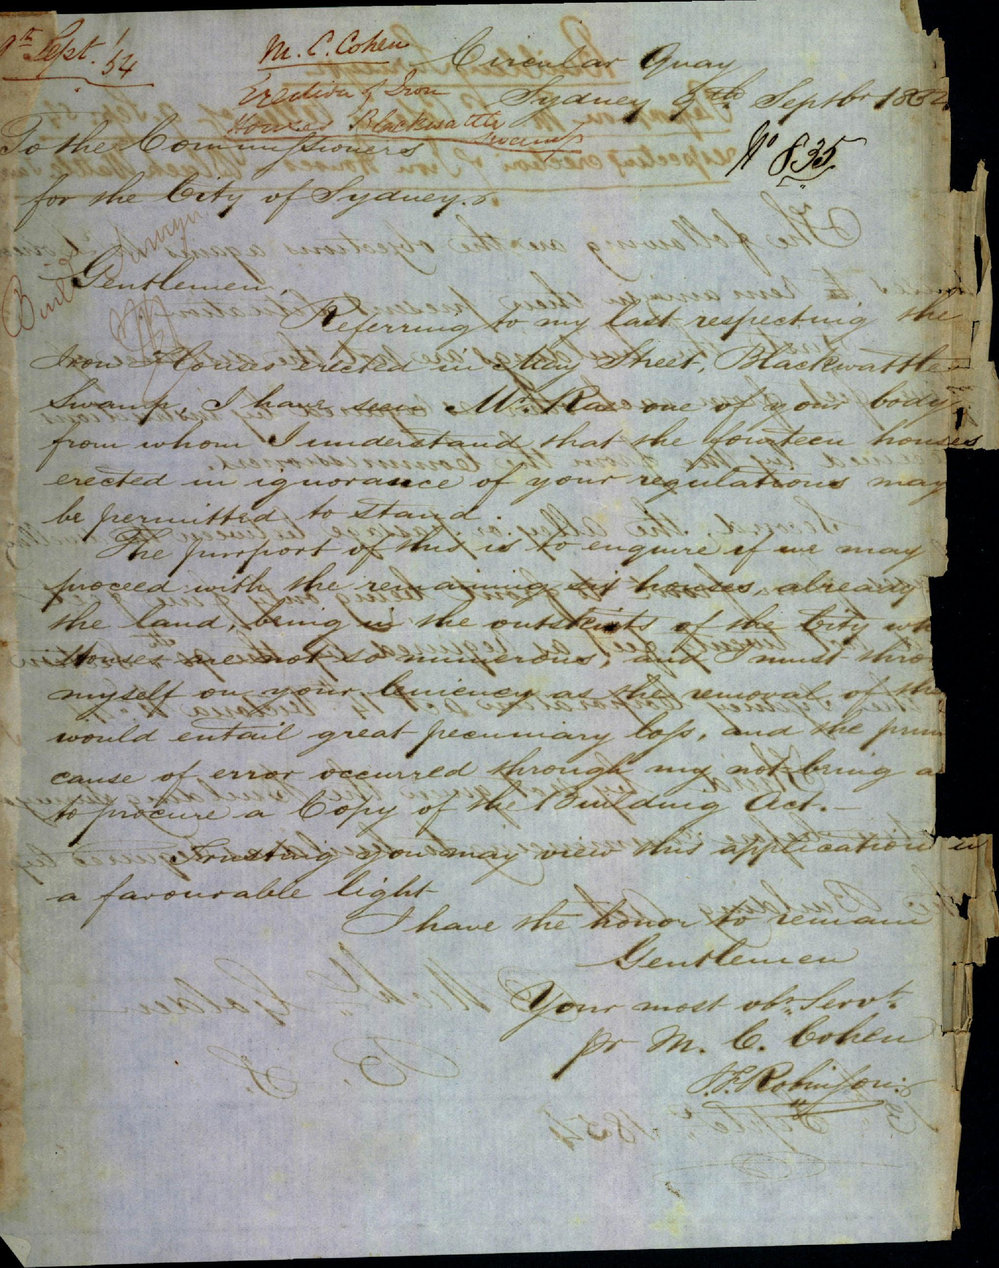 9th Sept. /54
M. C. Cohen
Erection of Iron
Houses Blackwattle
Swamp
Circular Quay
Sydney 9th Septbr 1854
No 835
To the Commissioners
for the City of Sydney.
Gentlemen,
Referring to my last respecting the
Iron Houses erected in May Street, Blackwattle
Swamp, I have seen Mr. Rae one of your body
from whom I understand that the fourteen houses
erected in ignorance of your regulations may
be permitted to stand.
The purport of this is to enquire if we may
proceed with the remaining six houses already
the land, being in the outskirts of the City wh
Houses are not so numerous, and I must thro
myself on your leniency as the removal of the
would entail great pecuniary loss, and the prin
cause of error occurred through my not being a
to procure a Copy of the Building Act.—
Trusting you may view this application in
a favourable light
I have the honor to remain
Gentlemen
Your most obt. Servt.
pr M. C. Cohen
Robinson